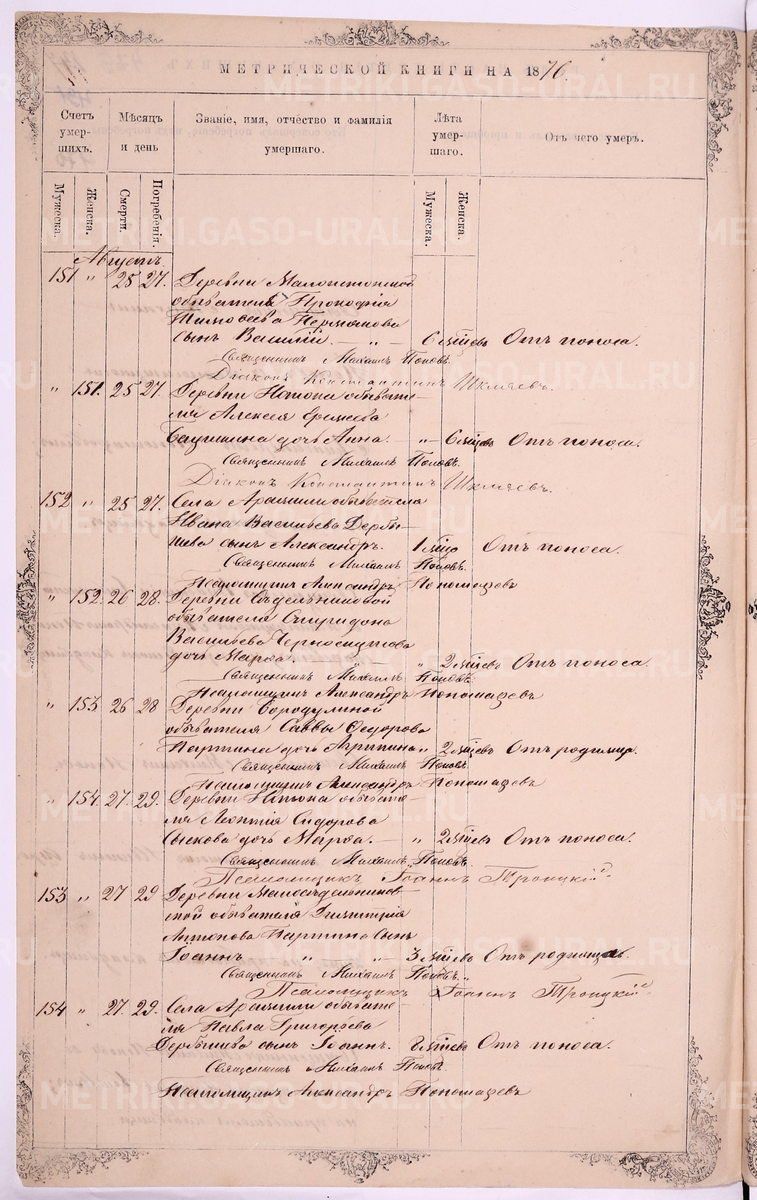 МЕТРИЧЕСКОЙ КНИГИ НА 1876.
Счетъ умершихъ. Мѣсяцъ и день Званіе, имя, отчество и фамилія умершаго. Лѣта умершаго. Отъ чего умеръ.
Мужеска. Женска. Смерти. Погребенія. Мужеска. Женска.
Августъ.
151 " 25 27. Деревни
обывателя Прокофія
Тимофеева
сынъ Василій. — " — 6 Отъ поноса.
Священникъ Михаилъ Поповъ.
Діаконъ Константинъ Шкляевъ.
" 151. 25 27. Деревни обывате-
ля Алексея
дочь Анна. — " 6 Отъ поноса.
Священникъ Михаилъ Поповъ.
Діаконъ Константинъ Шкляевъ.
152 " 25 27. Села Арамили обывателя
Ивана Васильева Дербы-
шева сынъ Александръ. 1 Отъ поноса.
Священникъ Михаилъ Поповъ.
Псаломщикъ Александръ Пономаревъ
" 152. 26 28. Деревни Сѣдельниковой
обывателя Спиридона
Васильева Черноскутова
дочь Марѳа. — " 2 Отъ поноса.
Священникъ Михаилъ Поповъ.
Псаломщикъ Александръ Пономаревъ
" 153 26 28 Деревни Бородулиной
обывателя Саввы Ѳедорова
дочь " 2 Отъ родимца.
Священникъ Михаилъ Поповъ.
Псаломщикъ Александръ Пономаревъ
" 154. 27. 29. Деревни обывате-
ля Леонтія Сидорова
дочь Марѳа. — " 2 Отъ поноса.
Священникъ Михаилъ Поповъ.
Псаломщикъ Іоаннъ Троицкій.
153 " 27 29 Деревни Малосѣдельников-
ской обывателя Димитрія
Антонова сынъ
Іоаннъ " " 3 Отъ родимца.
Священникъ Михаилъ Поповъ.
Псаломщикъ Іоаннъ Троицкій.
154 " 27. 29. Села Арамили обывате-
ля Павла Григорьева
Дербышева сынъ Іоаннъ. 2 Отъ поноса.
Священникъ Михаилъ Поповъ
Псаломщикъ Александръ Пономаревъ
METRIKI.GASO-URAL.RU